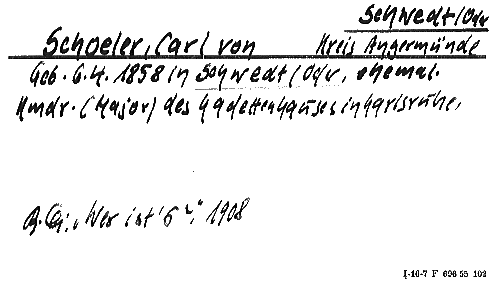 Schwedt/Odr
Schoeler, Carl von Kreis Angermünde
Geb. 6.4. 1858 in Schwedt/Odr, ehemal.
Kmdr. (Major) des Kadettenhauses in Karlsruhe,
"Wer ist's" 1908
I-16-7 F 696 55 102